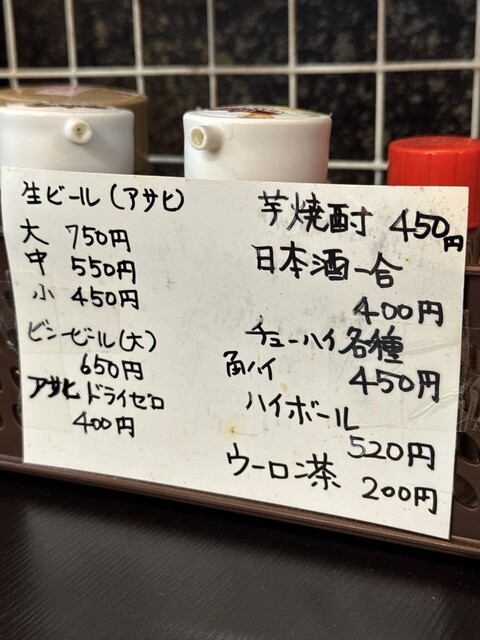 生ビール(アサヒ)
大 750円
中 550円
小 450円
ビンビール(大)
650円
アサヒドライゼロ
400円
芋焼酎 450円
日本酒一合
400円
チューハイ各種
角ハイ 450円
ハイボール
520円
ウーロン茶 200円